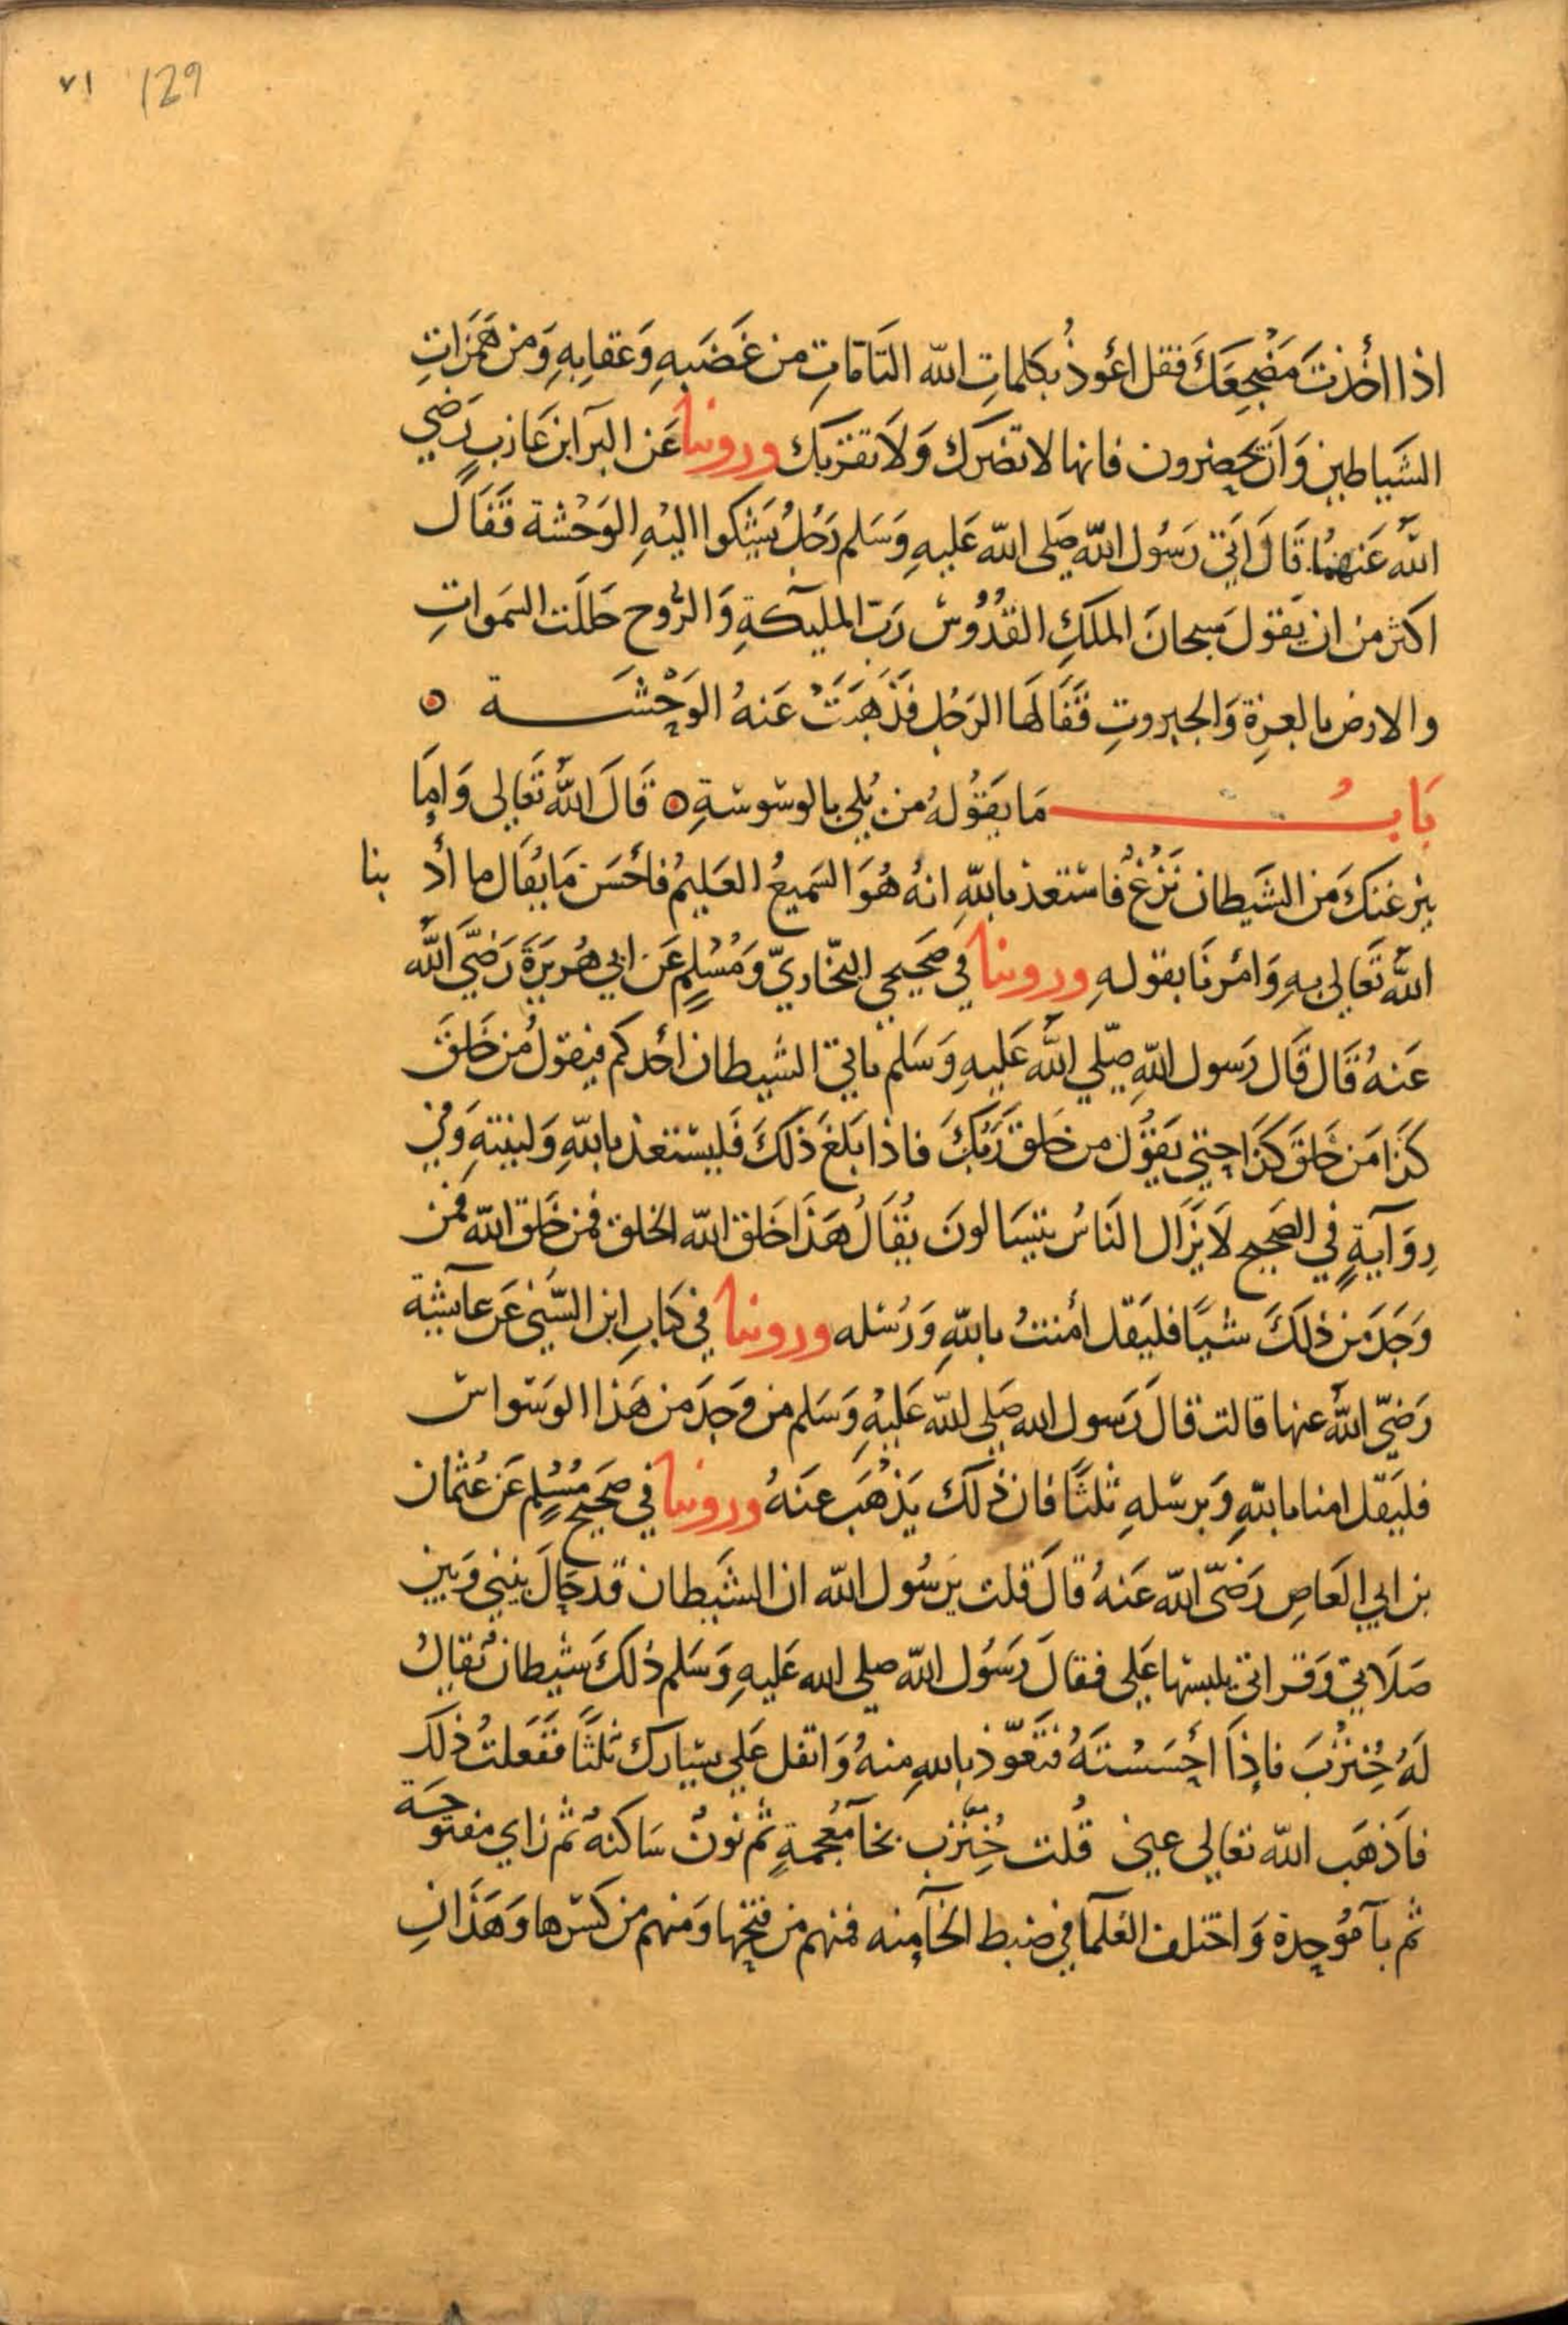 ٧١ 129
اذا اخذتَ مَضْجِعَكَ فقل اعُوذُ بكلماتِ الله التَامّاتِ من غَضَبهِ وَعقابِهِ وَمن هَمَزَاتِ
الشَياطين وَان يحضرون فانها لا تضرك وَلا تقربك وروينا عَن البرآ ابن عَازبٍ رَضي
اللهُ عَنهمُا قَالَ اتيَ رَسُول الله صَلى الله عَليهِ وَسَلم رَجُلُ يَشكوا اليْهِ الوَحْشة فَقَالَ
اكثر من ان يَقولَ سبحانَ الملكِ القدُوُس رَبّ المليكةِ وَالرُوح جَللَت السَموَاتِ
والارض بالعزةِ وَالجبروتِ فقَالهَا الرَجُل فذَهَبَتْ عَنهُ الوَحْشَة
بَابُ مَا يَقوُلهُ من بُلي بالوسْوسَةِ قَالَ اللهُ تَعَالى وَامِا
ينزغنكَ مَن الشَيطان نَزْغُ فاستعذ بالله انهُ هُوَ السَميعُ العَليمُ فاحْسَن مَا يُقَال ما أدبنا
اللهُ تَعَالى بهِ وَامْرنَا بقولهِ وروينا في صَحيحي البخاريّ وَمُسْلمٍ عَن ابي هُريرَةَ رَضيَ اللهُ
عَنهُ قَال قَال رَسول اللهِ صَلّي اللهُ عَليهِ وَسَلمْ ياتي الشيطان احَدكم فيقولُ مُن خَلقَ
كذَا مَن خَلقَ كذَا حتى يَقوُل من خلقَ رَبُكَ فاذا بَلغَ ذلكَ فَليستعذ بالله وَلينتهِ وَفي
رِوَايةٍ في الصَحيح لَا يَزَال النَاسُ يتسَالونَ يُقَالُ هَذَا خَلق الله الخلق فمن خَلق الله فمن
وَجَدَ من ذلكَ شيًا فليَقل أمنتُ بالله وَرُسُله وروينا في كتابِ ابن السُني عَن عآيشة
رَضيّ اللهُ عنها قالت قالَ رَسول الله صَلى الله عَليْهِ وَسَلم من وَجدَ من هَذا الوَسْواس
فليَقل امنا بالله وَبرسُلهِ ثلثًا فان ذلك يَذْهَب عنهُ وروينا في صَحيح مُسْلم عَن عُثمان
بن ابي العَاصِ رَضيّ الله عَنهُ قالَ قلت يَرسُول الله ان الشَيطان قد حَالَ بيني وَبين
صَلَاتي وَقراتي يلبسها عَلي فقالَ رَسُول الله صلى الله عَليهِ وَسَلم ذلكَ شيطان يُقالُ
لهُ خِنزَبَ فاذَا احْسَسْتهُ فتَعَوّذ بالله منهُ وَاتفل عَلي يسَارك ثلثًا ففَعلتُ ذلك
فاذهَب الله تعالى عني قُلت خِنْزَب بخآ مُعْجمةٍ ثم نونْ سَاكنهُ ثم زاي مفتوحَة
ثم بآ مُوحدة وَاختلف العُلمآ في ضبط الخآ منه فمنهم من فتحها وَمنهم من كسَرها وَهَذَانِ